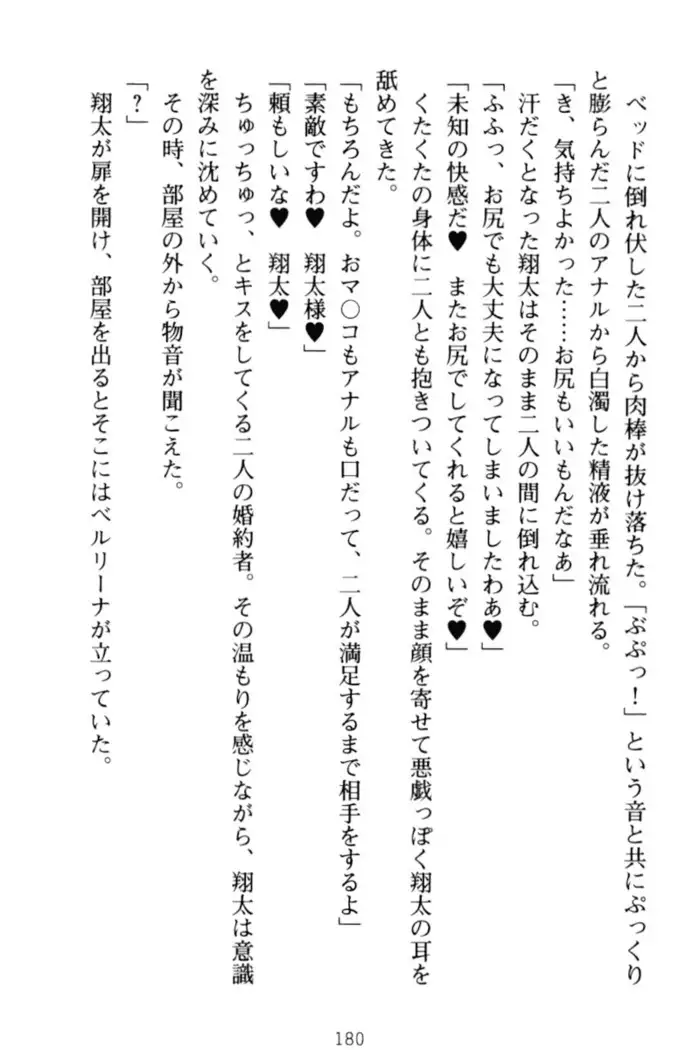 ベッドに倒れ伏した二人から肉棒が抜け落ちた。「ぶぷっ！」という音と共にぷっくり
と膨らんだ二人のアナルから白濁した精液が垂れ流れる。
「き、気持ちよかった……お尻もいいもんだなあ」
汗だくとなった翔太はそのまま二人の間に倒れ込む。
「ふふっ、お尻でも大丈夫になってしまいましたわぁ♥」
「未知の快感だ♥　またお尻でしてくれると嬉しいぞ♥」
くたくたの身体に二人とも抱きついてくる。そのまま顔を寄せて悪戯っぽく翔太の耳を
舐めてきた。
「もちろんだよ。おマ○コもアナルも口だって、二人が満足するまで相手をするよ」
「素敵ですわ♥　翔太様♥」
「頼もしいな♥　翔太♥」
ちゅっちゅっ、とキスをしてくる二人の婚約者。その温もりを感じながら、翔太は意識
を深みに沈めていく。
その時、部屋の外から物音が聞こえた。
「？」
翔太が扉を開け、部屋を出るとそこにはベルリーナが立っていた。
180